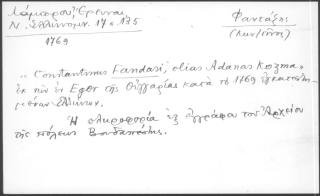 Λάμπρου, Έρευναι
Ν. Ελληνομν. 17 σ 175
1769
Φαντάζης
(Κων/τῖνος)
"Constantinus Fandasi, alias Adanas Kozma"
ἐκ τῶν ἐν Eger τῆς Οὑγγαρίας κατὰ τὸ 1769 ἐγκατεστη
μένων Ἑλλήνων.
Ἡ πληροφορία ἐξ ἐγγράφου τοῦ Ἀρχείου
τῆς πόλεως Βουδαπέστης.